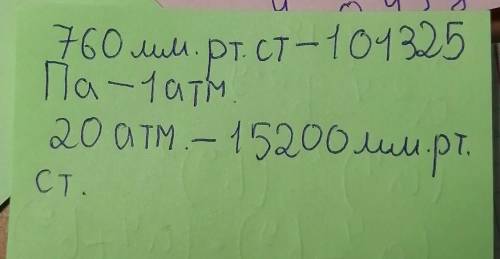 760 мм.рт.ст – 101325
Па – 1 атм.
20 атм. – 15200 мм.рт.
ст.